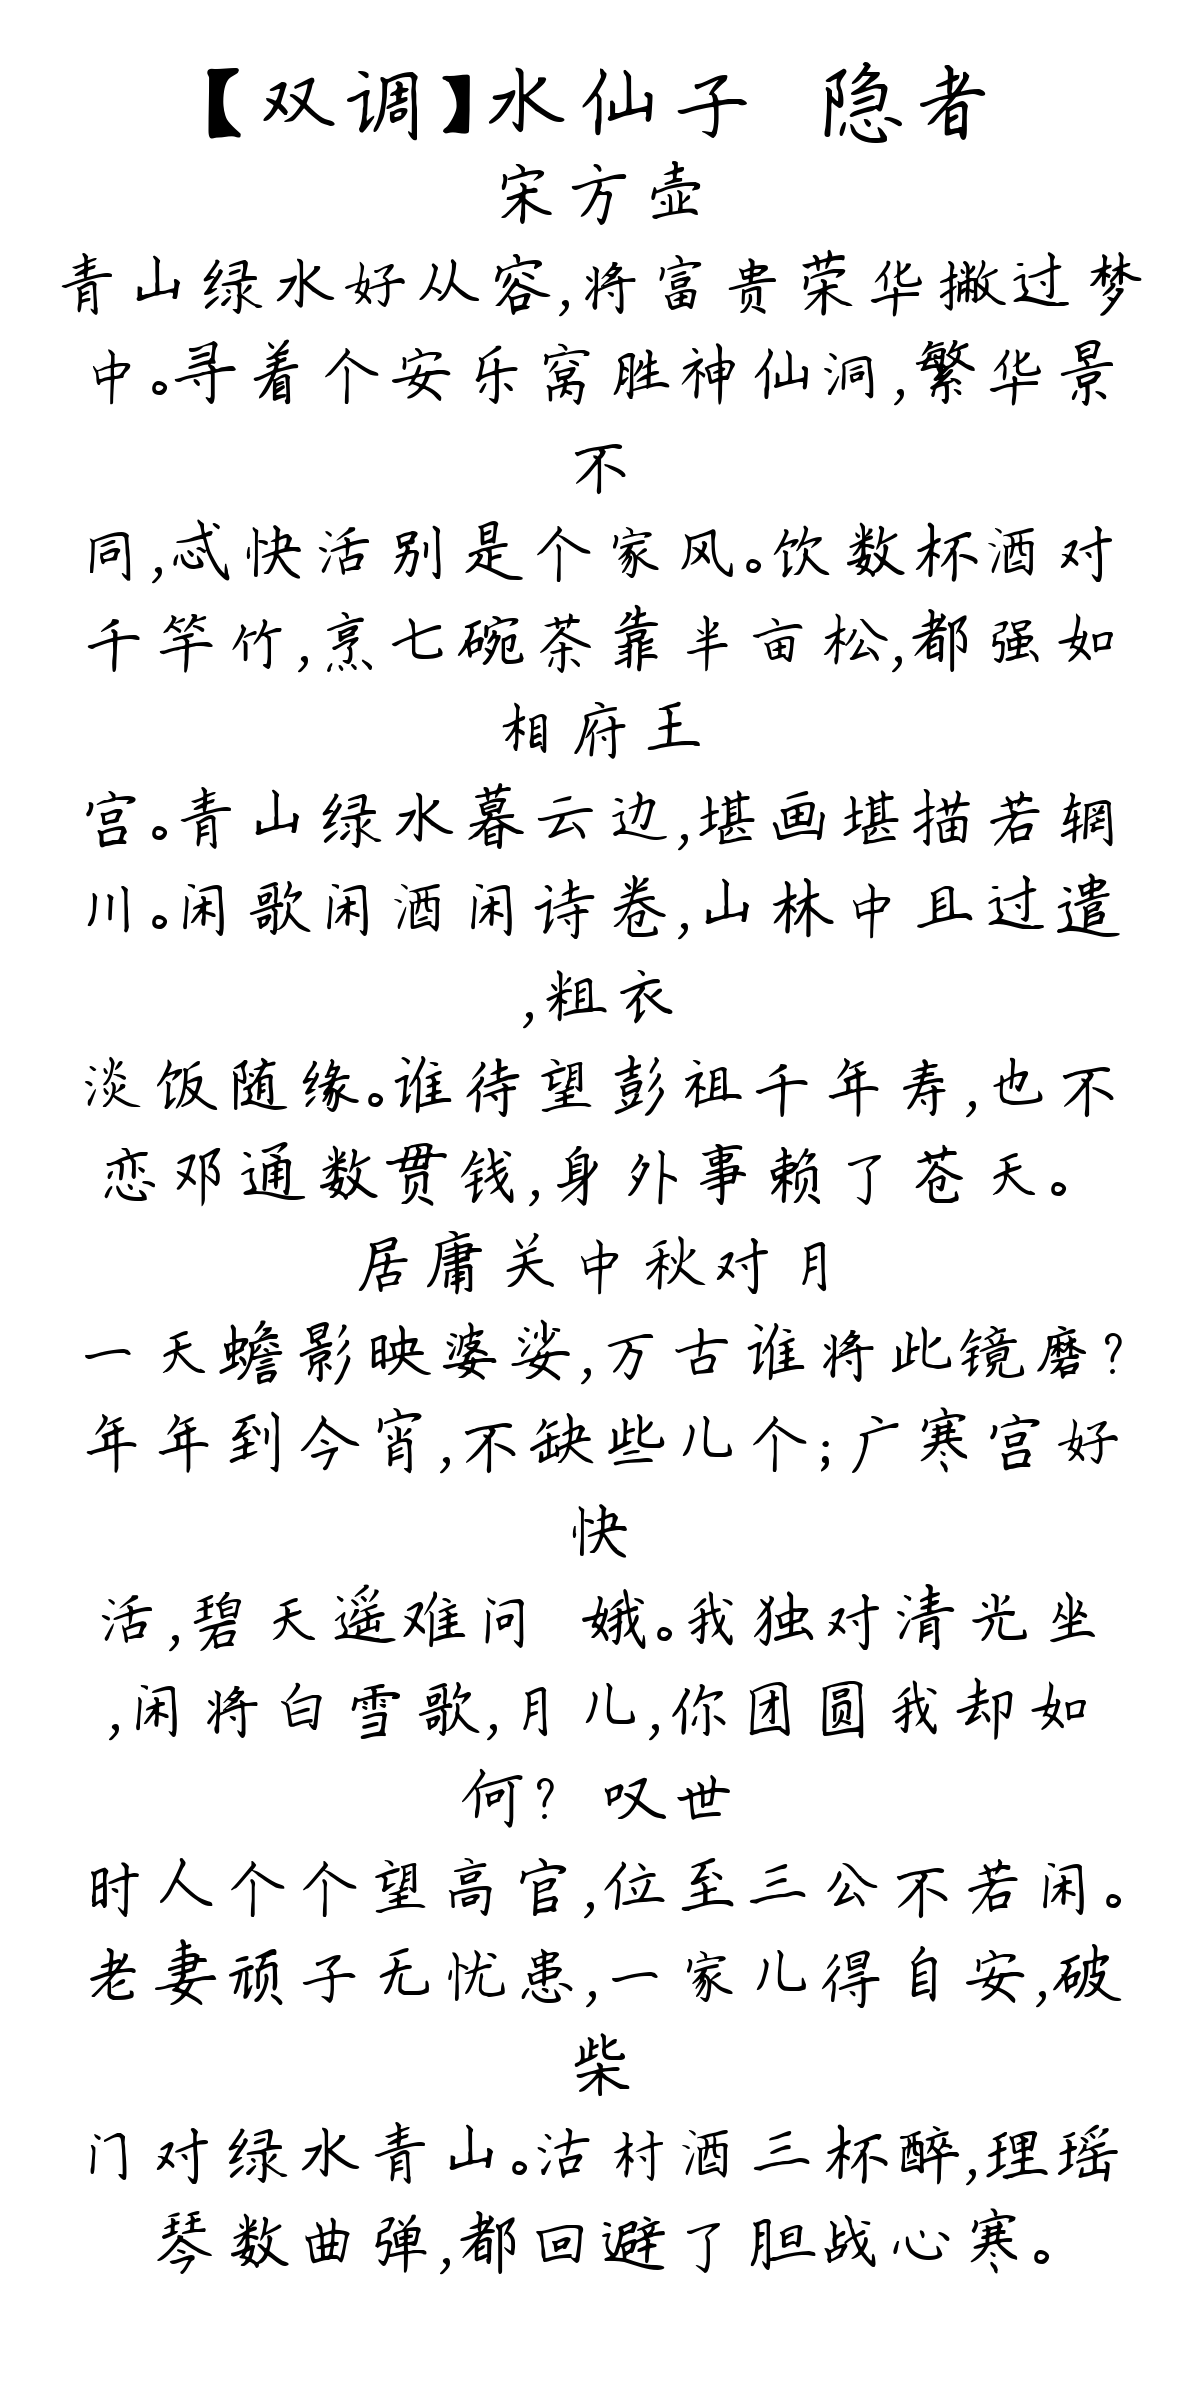 【双调】水仙子 隐者
宋方壶
青山绿水好从容,将富贵荣华撇过梦
中。寻着个安乐窝胜神仙洞,繁华景
不
同,忒快活别是个家风。饮数杯酒对
千竿竹,烹七碗茶靠半亩松,都强如
相府王
宫。青山绿水暮云边,堪画堪描若辋
川。闲歌闲酒闲诗卷,山林中且过遣
,粗衣
淡饭随缘。谁待望彭祖千年寿,也不
恋邓通数贯钱,身外事赖了苍天。
居庸关中秋对月
一天蟾影映婆娑,万古谁将此镜磨?
年年到今宵,不缺些儿个;广寒宫好
快
活,碧天遥难问 娥。我独对清光坐
,闲将白雪歌,月儿,你团圆我却如
何? 叹世
时人个个望高官,位至三公不若闲。
老妻顽子无忧患,一家儿得自安,破
柴
门对绿水青山。沽村酒三杯醉,理瑶
琴数曲弹,都回避了胆战心寒。